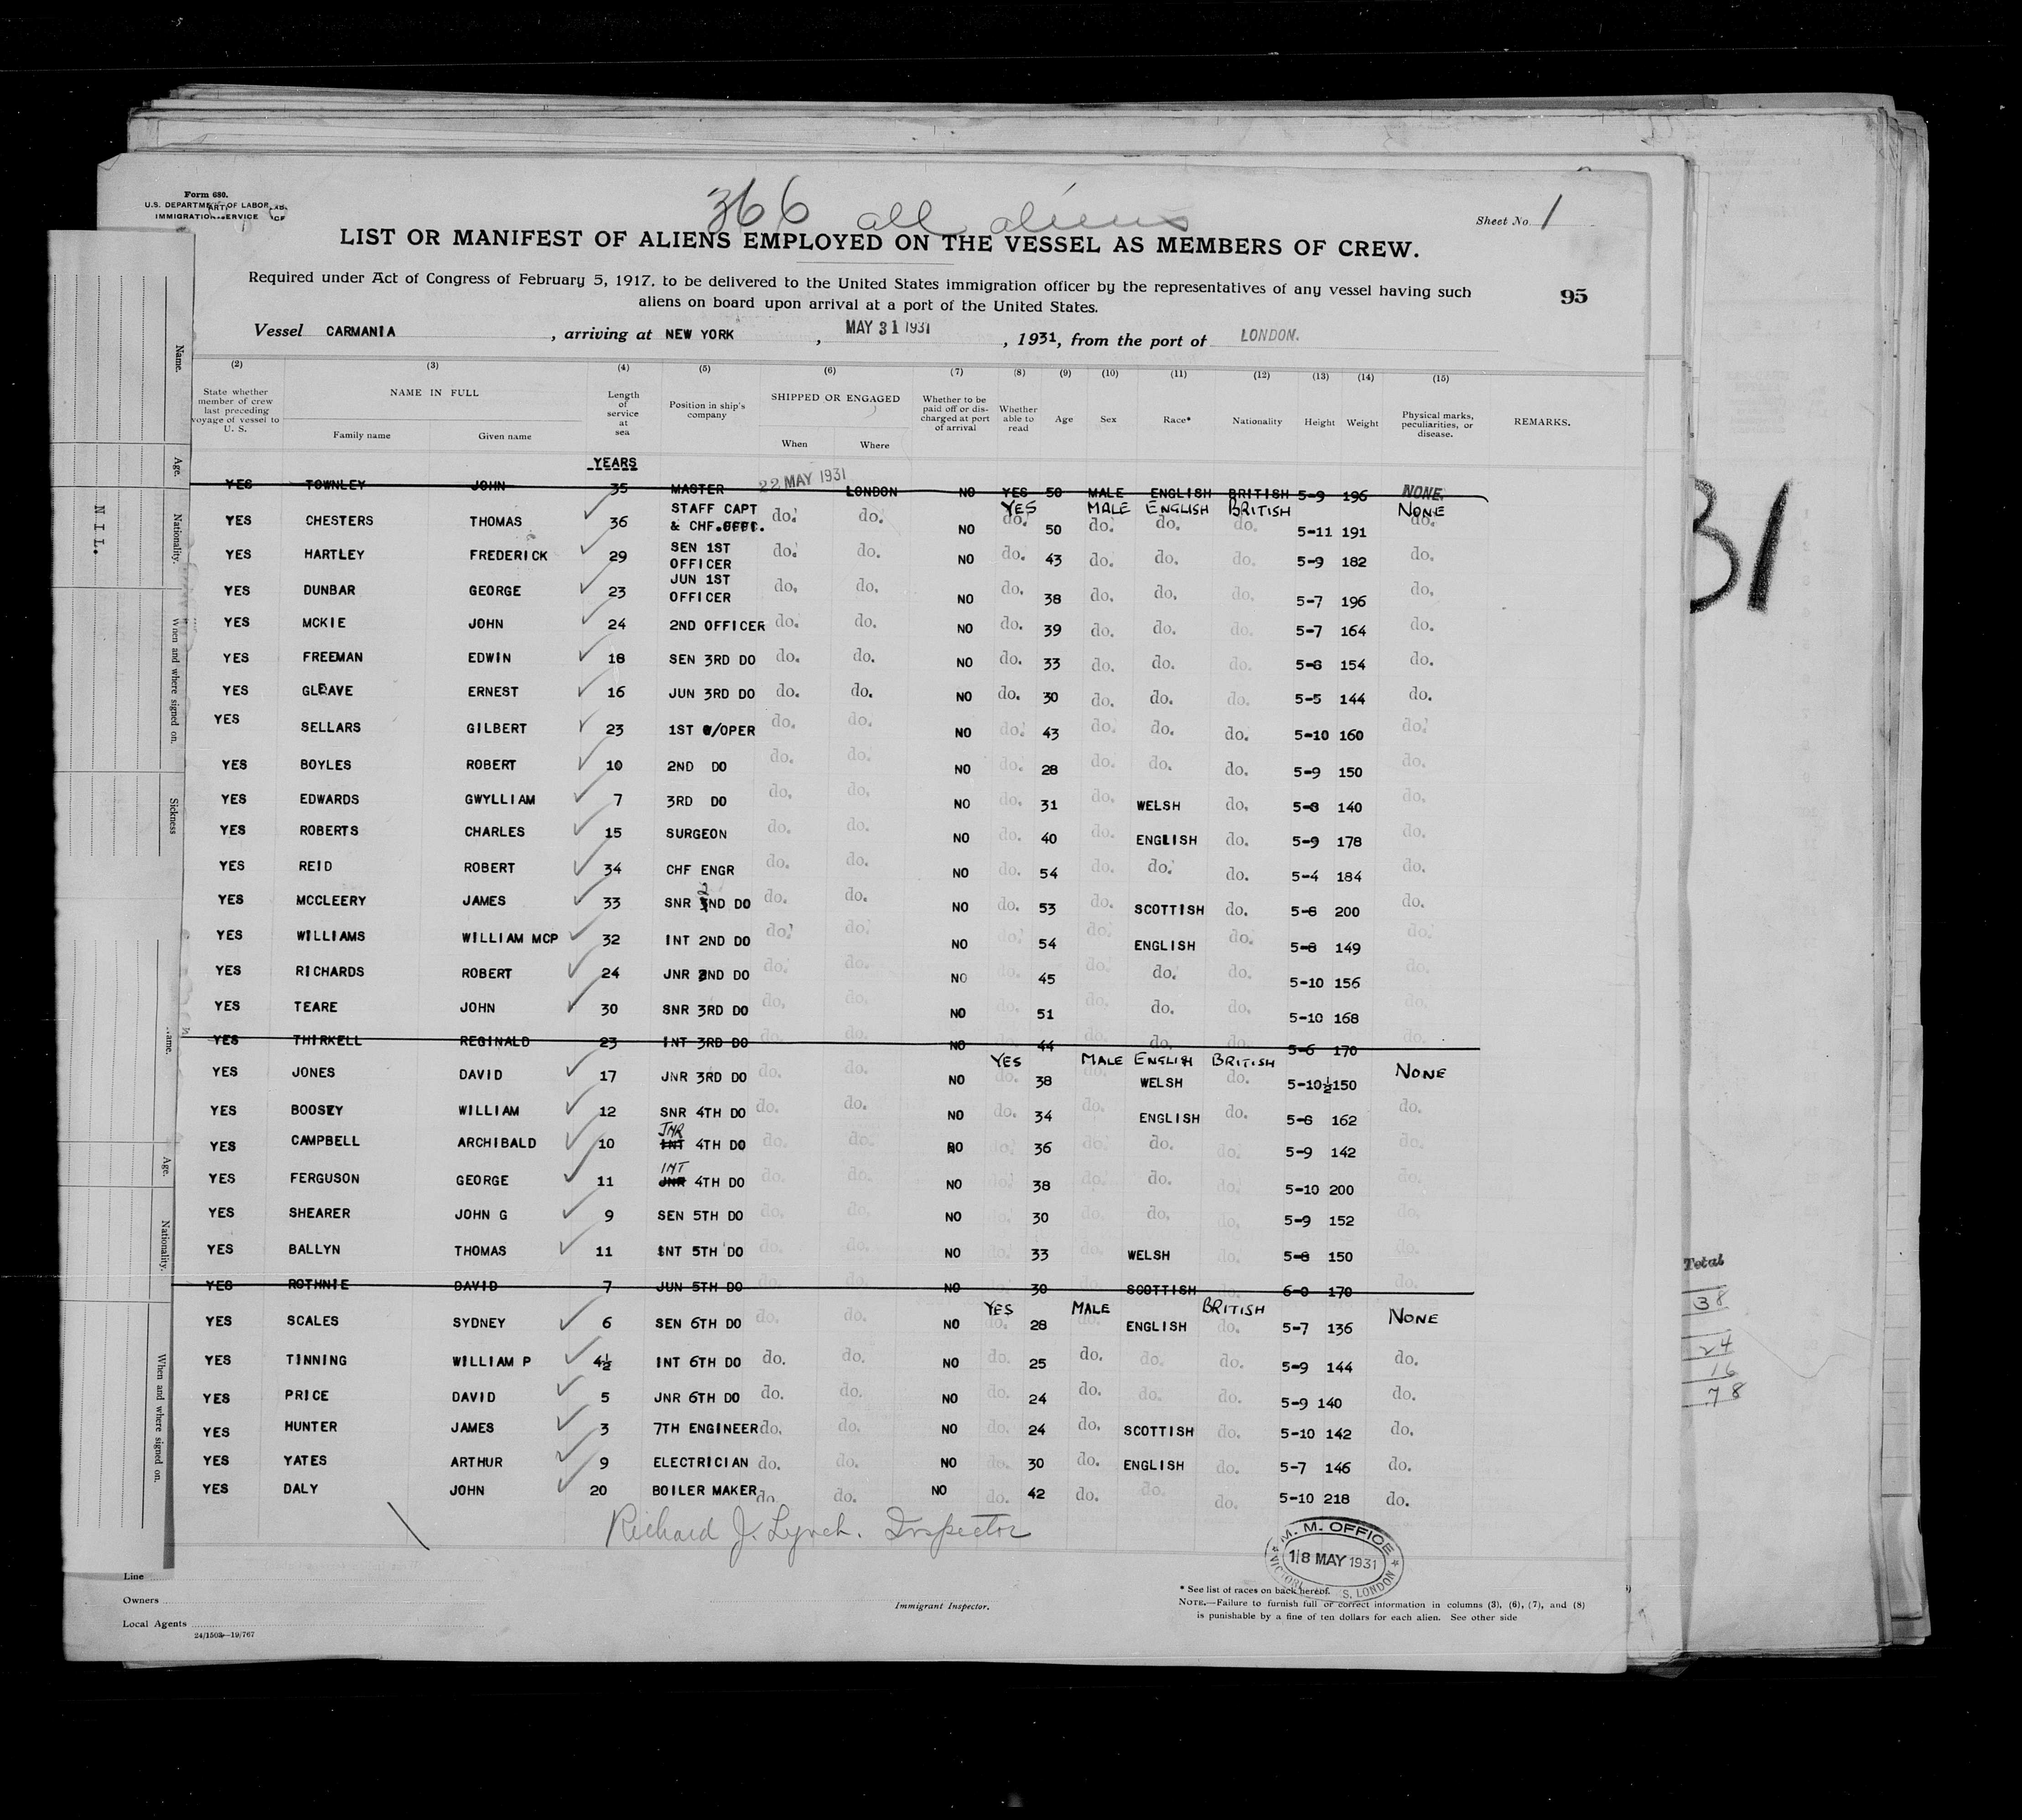 Form 680.
U.S. DEPARTMENT OF LABOR
IMMIGRATION SERVICE
366 all aliens
Sheet No. 1
LIST OR MANIFEST OF ALIENS EMPLOYED ON THE VESSEL AS MEMBERS OF CREW.
Required under Act of Congress of February 5, 1917, to be delivered to the United States immigration officer by the representatives of any vessel having such
aliens on board upon arrival at a port of the United States.
95
Vessel CARMANIA , arriving at NEW YORK , MAY 31 1931 , 1931, from the port of LONDON.
(2) (3) (4) (5) (6) (7) (8) (9) (10) (11) (12) (13) (14) (15)
State whether member of crew last preceding voyage of vessel to U. S.
NAME IN FULL
Family name Given name
Length of service at sea
Position in ship's company
SHIPPED OR ENGAGED
When Where
Whether to be paid off or discharged at port of arrival
Whether able to read
Age Sex Race* Nationality Height Weight
Physical marks, peculiarities, or disease.
REMARKS.
YEARS
YES TOWNLEY JOHN 35 MASTER 22 MAY 1931 LONDON NO YES 50 MALE ENGLISH BRITISH 5-9 196 NONE.
YES MALE ENGLISH BRITISH NONE
YES CHESTERS THOMAS 36 STAFF CAPT & CHF.OFFR. do. do. NO do. 50 do. do. do. 5-11 191 do.
YES HARTLEY FREDERICK 29 SEN 1ST OFFICER do. do. NO do. 43 do. do. do. 5-9 182 do.
YES DUNBAR GEORGE 23 JUN 1ST OFFICER do. do. NO do. 38 do. do. do. 5-7 196 do.
YES MCKIE JOHN 24 2ND OFFICER do. do. NO do. 39 do. do. do. 5-7 164 do.
YES FREEMAN EDWIN 18 SEN 3RD DO do. do. NO do. 33 do. do. do. 5-8 154 do.
YES GLEAVE ERNEST 16 JUN 3RD DO do. do. NO do. 30 do. do. do. 5-5 144 do.
YES SELLARS GILBERT 23 1ST W/OPER do. do. NO do. 43 do. do. do. 5-10 160 do.
YES BOYLES ROBERT 10 2ND DO do. do. NO do. 28 do. do. do. 5-9 150 do.
YES EDWARDS GWYLLIAM 7 3RD DO do. do. NO do. 31 do. WELSH do. 5-8 140 do.
YES ROBERTS CHARLES 15 SURGEON do. do. NO do. 40 do. ENGLISH do. 5-9 178 do.
YES REID ROBERT 34 CHF ENGR do. do. NO do. 54 do. do. do. 5-4 184 do.
YES MCCLEERY JAMES 33 SNR 2ND DO do. do. NO do. 53 do. SCOTTISH do. 5-8 200 do.
YES WILLIAMS WILLIAM MCP 32 INT 2ND DO do. do. NO do. 54 do. ENGLISH do. 5-8 149 do.
YES RICHARDS ROBERT 24 JNR 2ND DO do. do. NO do. 45 do. do. do. 5-10 156 do.
YES TEARE JOHN 30 SNR 3RD DO do. do. NO 51 do. do. do. 5-10 168 do.
YES THIRKELL REGINALD 23 INT 3RD DO do. do. NO 44 do. do. do. 5-6 170 do.
YES MALE ENGLISH BRITISH NONE
YES JONES DAVID 17 JNR 3RD DO do. do. NO do. 38 do. WELSH do. 5-10½ 150
YES BOOSEY WILLIAM 12 SNR 4TH DO do. do. NO do. 34 do. ENGLISH do. 5-8 162 do.
YES CAMPBELL ARCHIBALD 10 JNR INT 4TH DO do. do. NO do. 36 do. do. do. 5-9 142 do.
YES FERGUSON GEORGE 11 INT JNR 4TH DO do. do. NO do. 38 do. do. do. 5-10 200 do.
YES SHEARER JOHN G 9 SEN 5TH DO do. do. NO do. 30 do. do. do. 5-9 152 do.
YES BALLYN THOMAS 11 INT 5TH DO do. do. NO do. 33 do. WELSH do. 5-8 150 do.
YES ROTHNIE DAVID 7 JUN 5TH DO do. do. NO do. 30 do. SCOTTISH do. 6-0 170 do.
YES MALE BRITISH NONE
YES SCALES SYDNEY 6 SEN 6TH DO do. do. NO do. 28 do. ENGLISH do. 5-7 136
YES TINNING WILLIAM P 4½ INT 6TH DO do. do. NO do. 25 do. do. do. 5-9 144 do.
YES PRICE DAVID 5 JNR 6TH DO do. do. NO do. 24 do. do. do. 5-9 140 do.
YES HUNTER JAMES 3 7TH ENGINEER do. do. NO do. 24 do. SCOTTISH do. 5-10 142 do.
YES YATES ARTHUR 9 ELECTRICIAN do. do. NO do. 30 do. ENGLISH do. 5-7 146 do.
YES DALY JOHN 20 BOILER MAKER do. do. NO do. 42 do. do. do. 5-10 218 do.
Richard J. Lynch. Inspector
Immigrant Inspector.
M. M. OFFICE
18 MAY 1931
S. LONDON
Line
Owners
Local Agents
* See list of races on back hereof.
NOTE.—Failure to furnish full or correct information in columns (3), (6), (7), and (8)
is punishable by a fine of ten dollars for each alien. See other side
Name.
Age.
NIL.
Nationality.
When and where signed on.
Sickness
Name.
Age.
Nationality.
When and where signed on.
31
Total
38
24
16
78